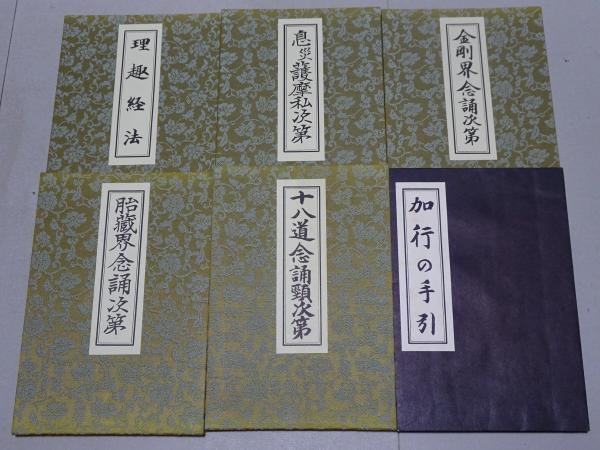 理趣経法
息災護摩私次第
金剛界念誦次第
胎蔵界念誦次第
十八道念誦頸次第
加行の手引